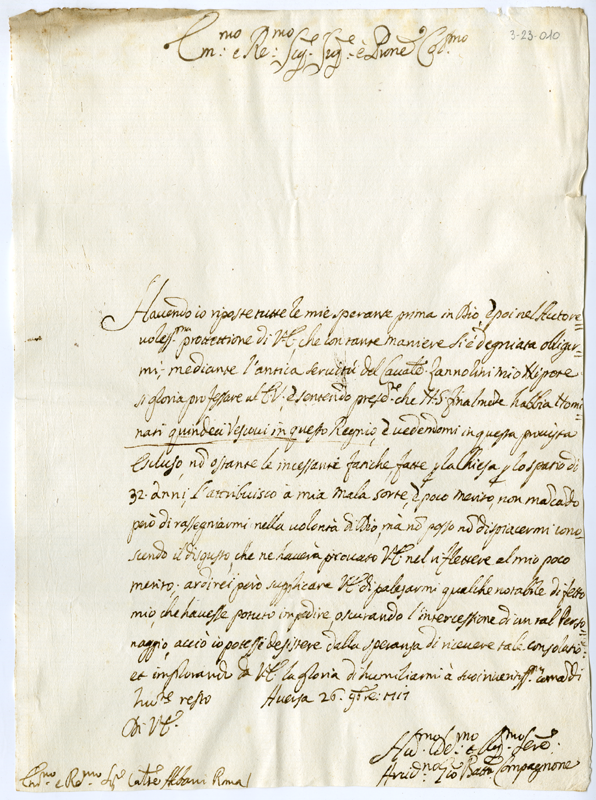 Em:mo e Re:mo Sig:re Sig:re e P̃rone Col:mo
3-23-010
Havendo io riposte tutte le mie speranze prima in Dio, e poi nell'Autore=
voless:ma protettione di VE, che con tante maniere si è degniata obligar=
mi, mediante l'antica servitù del Cavalre Zannolini mio Nipote
si gloria professare al EV; e sentendo pres:te che NS finalmte habbia Nomi=
nati quindeci Vescovi in questo Regnio, e vedendomi in questa provista
escluso nõ ostante le incessanti fatiche fatte p la Chiesa p lo spatio di
32. anni, l'attribuisco à mia mala sorte, e poco merito, non mãcãdo
però di rasegniarmi nella volontà di Dio, mà nõ posso nõ dispiacermi cono=
scendo il disgusto, che ne haverà provato VE nel riflettere al mio poco
merito. ardirei però supplicare VE di palesarmi qualche notabile difetto
mio che havesse potuto impedire, oscurando l'intercessione di un tal Perso=
naggio, acciò io potesse desistere dalla speranza di ricevere tal consolatio:
et implorando da VE la gloria di humiliarmi à suoi comãdi
resto Aversa 26. 9bre: 1717
Di VE
Hu:mo De:mo e Re:mo Serre
Gio Batta Compagnone
Em:mo e Re:mo Sigre Albani Roma